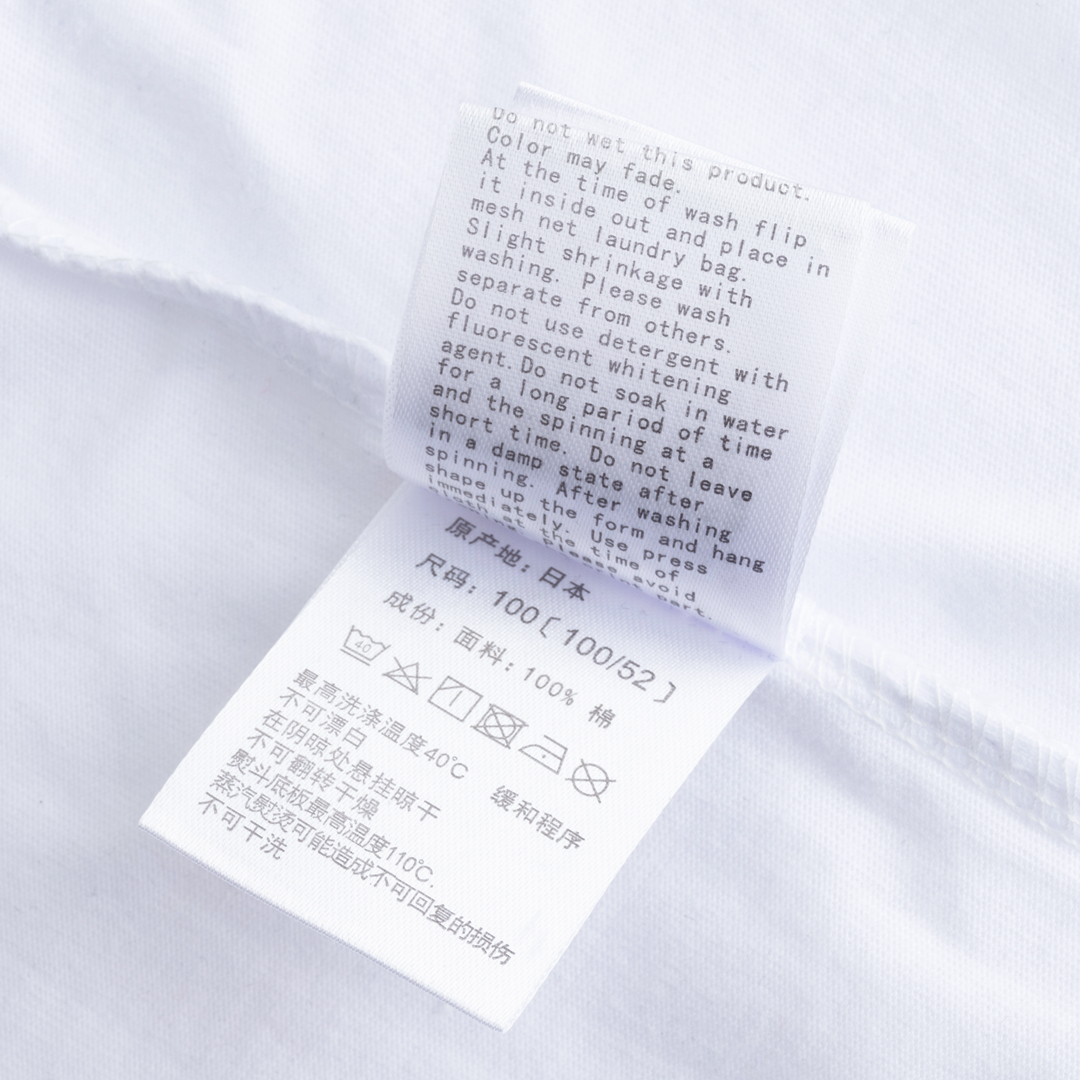 Do not wet this product.
Color may fade.
At the time of wash flip
it inside out and place in
mesh net laundry bag.
Slight shrinkage with
washing. Please wash
separate from others.
Do not use detergent with
fluorescent whitening
agent. Do not soak in water
for a long pariod of time
and the spinning at a
short time. Do not leave
in a damp state after
spinning. After washing
shape up the form and hang
immediately. Use press
cloth at the time of
Please avoid
part.
原产地: 日本
尺码: 100〔100/52〕
成份: 面料: 100% 棉
40
最高洗涤温度40℃ 缓和程序
不可漂白
在阴晾处悬挂晾干
不可翻转干燥
熨斗底板最高温度110℃.
蒸汽熨烫可能造成不可回复的损伤
不可干洗